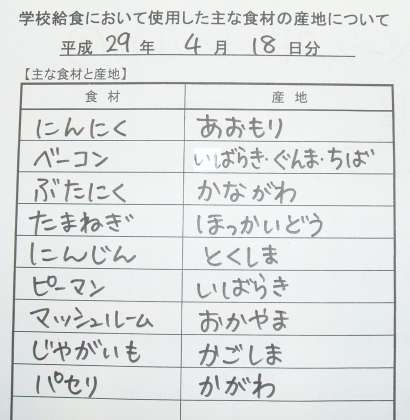 学校給食において使用した主な食材の産地について
平成 29 年 4 月 18 日分
【主な食材と産地】
食材 産地
にんにく あおもり
ベーコン いばらき・ぐんま・ちば
ぶたにく かながわ
たまねぎ ほっかいどう
にんじん とくしま
ピーマン いばらき
マッシュルーム おかやま
じゃがいも かごしま
パセリ かがわ